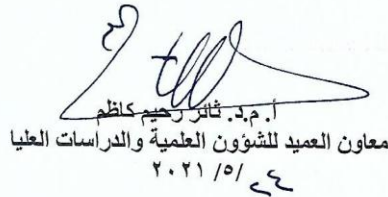 أ. م.د. ثائر رحيم كاظم
معاون العميد للشؤون العلمية والدراسات العليا
٢٤ /٥/ ٢٠٢١